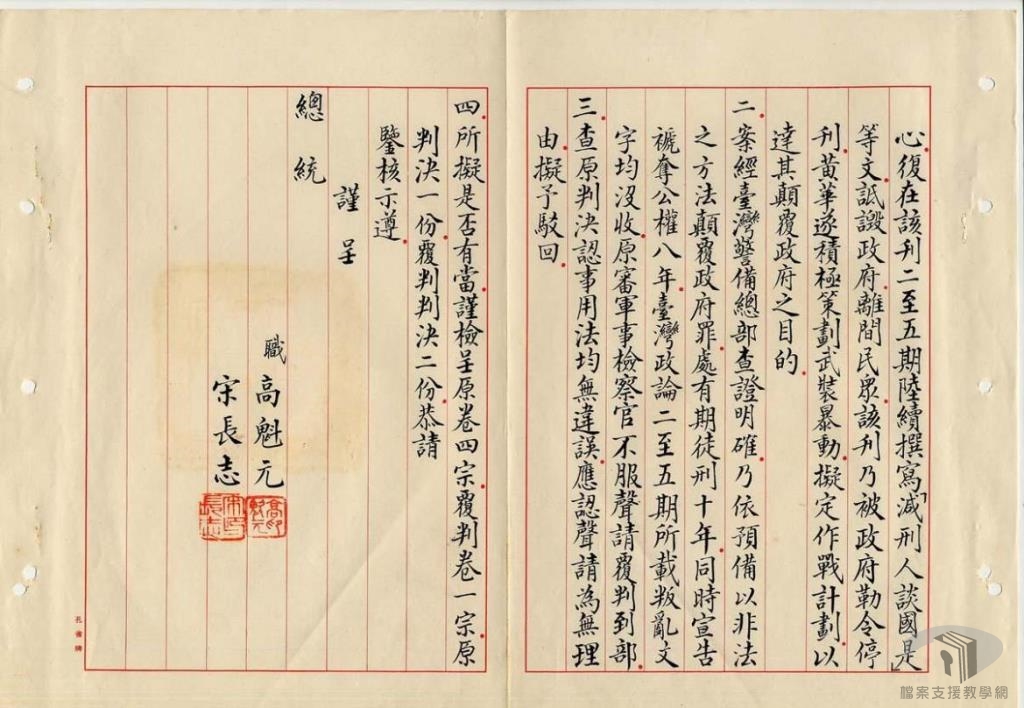 心復在該刊二至五期陸續撰寫「減刑人談國是」
等文詆譭政府離間民眾該刊乃被政府勒令停
刊黃華遂積極策劃武裝暴動擬定作戰計劃以
達其顛覆政府之目的
二案經臺灣警備總部查證明確乃依預備以非法
之方法顛覆政府罪處有期徒刑十年同時宣告
褫奪公權八年臺灣政論二至五期所載叛亂文
字均沒收原審軍事檢察官不服聲請覆判到部
三查原判決認事用法均無違誤應認聲請為無理
由擬予駁回
四所擬是否有當謹檢呈原卷四宗覆判卷一宗原
判決一份覆判判決二份恭請
鑒核示遵
謹呈
總統
職高魁元
宋長志
孔雀牌
檔案支援教學網